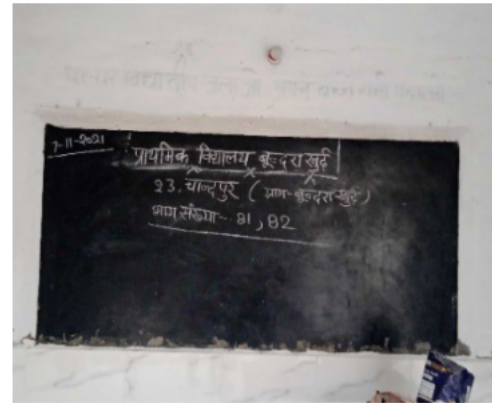 7-11-2021
प्राथमिक विद्यालय बुन्दरा खुर्द
23. चान्दपुर (ग्राम-बुन्दरा-खुर्द)
भाग संख्या- 81, 82